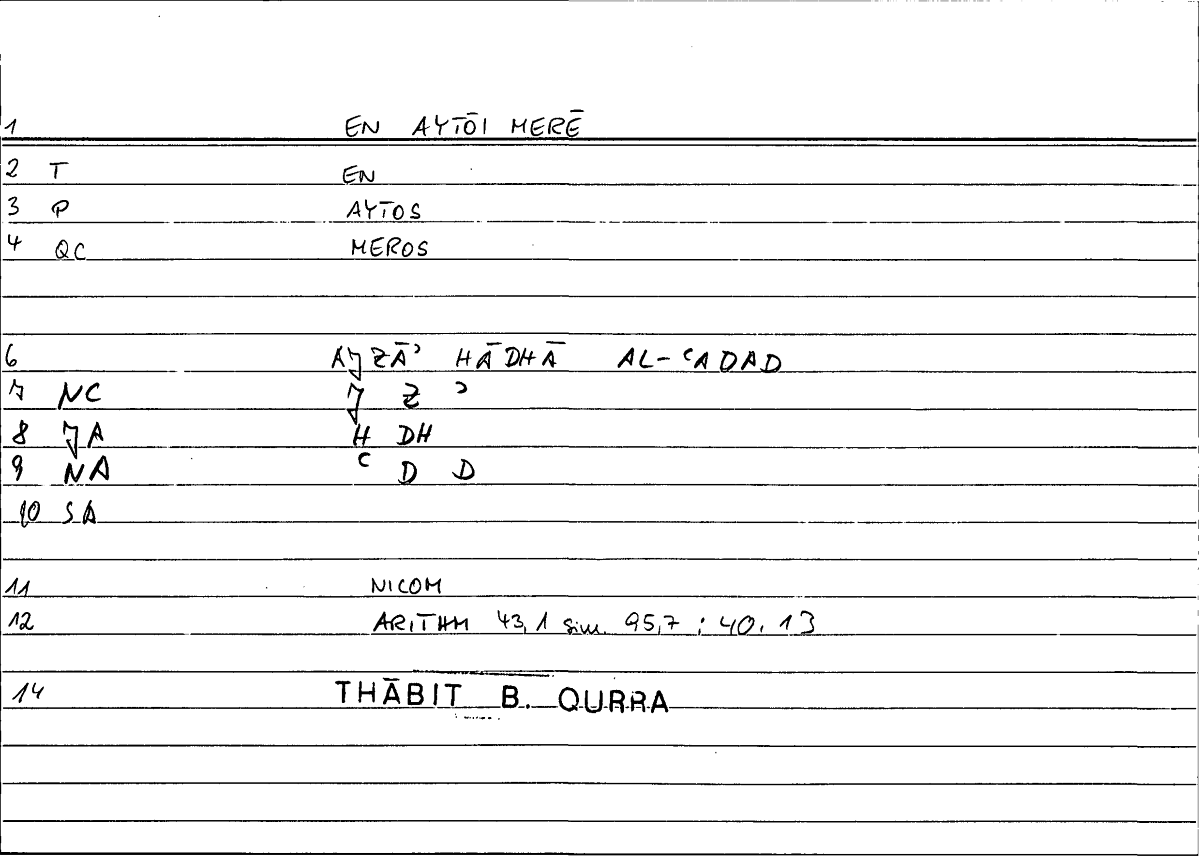 1 EN AYTŌI MERĒ
2 T EN
3 P AYTOS
4 QC MEROS
6 AJZĀʾ HĀDHĀ AL-ʿADAD
7 NC J Z ʾ
8 JA H DH
9 NA ʿ D D
10 SA
11 NICOM
12 ARITHM 43,1 sim. 95,7 ; 40.13
14 THĀBIT B. QURRA